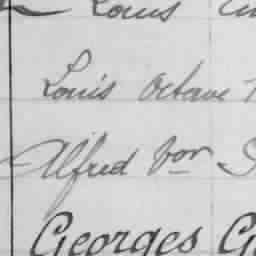 Louis
Louis Octave
Alfred Vor
Georges G